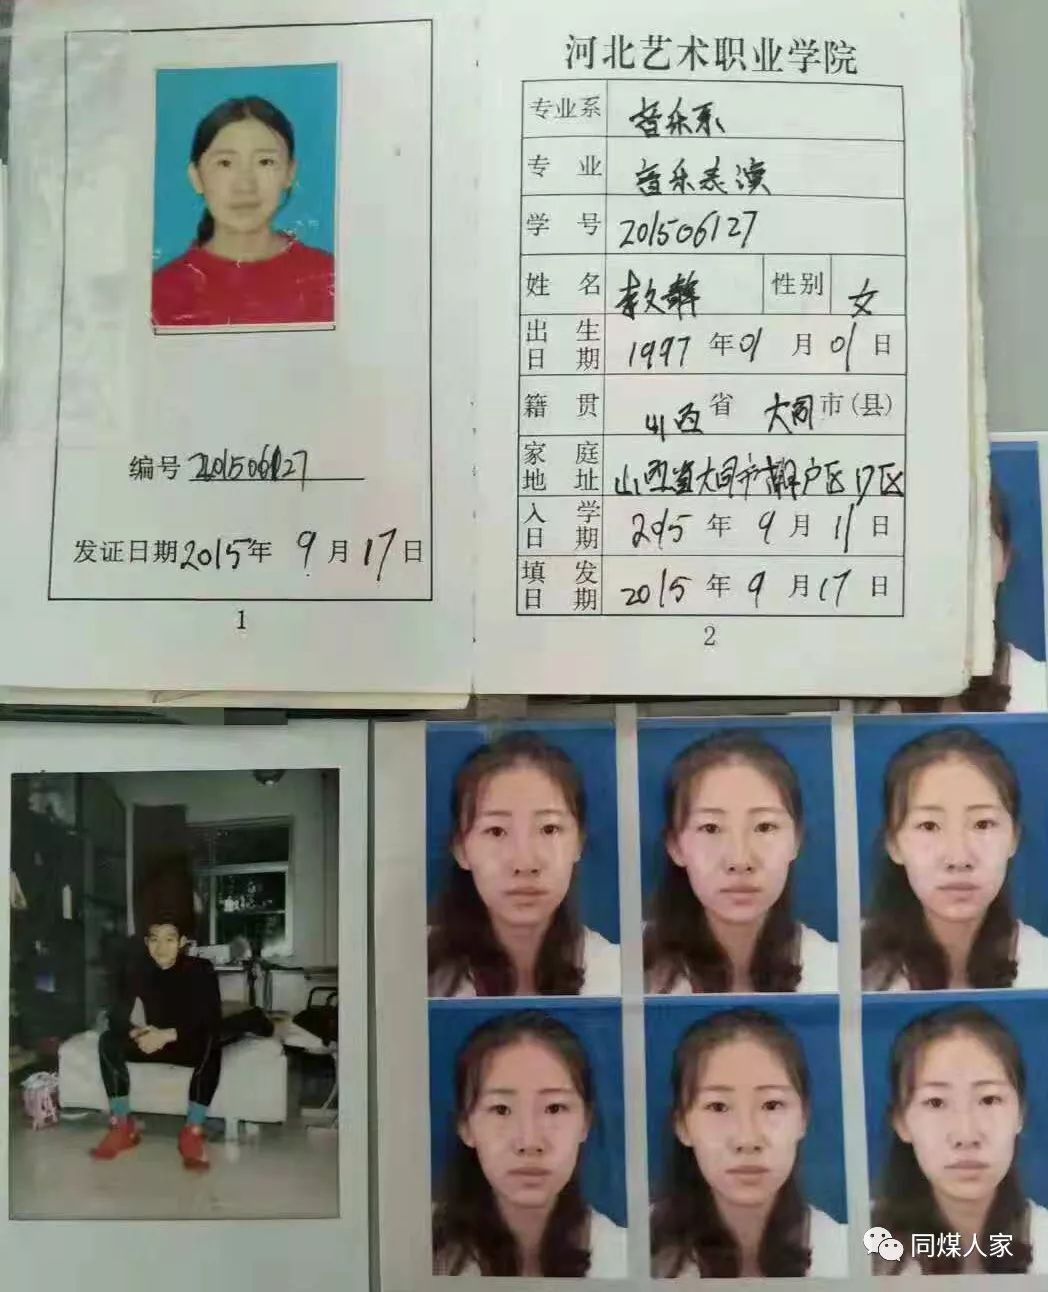 编号 201506127
发证日期 2015年 9月17日
1
河北艺术职业学院
专业系 音乐系
专业 音乐表演
学号 201506127
姓名 李文静 性别 女
出生日期 1997年01月01日
籍贯 山西省 大同市(县)
家庭地址 山西省大同市棚户区 区
入学日期 2015年9月11日
填发日期 2015年9月17日
2
同煤人家